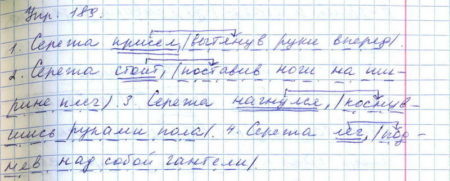 Упр. 189.
1. Сережа присел, /вытянув руки вперед/.
2. Сережа стоит, /поставив ноги на ши-
рине плеч/. 3. Сережа нагнулся, /коснув-
шись руками пола/. 4. Сережа лег, /под-
няв над собой гантели/.